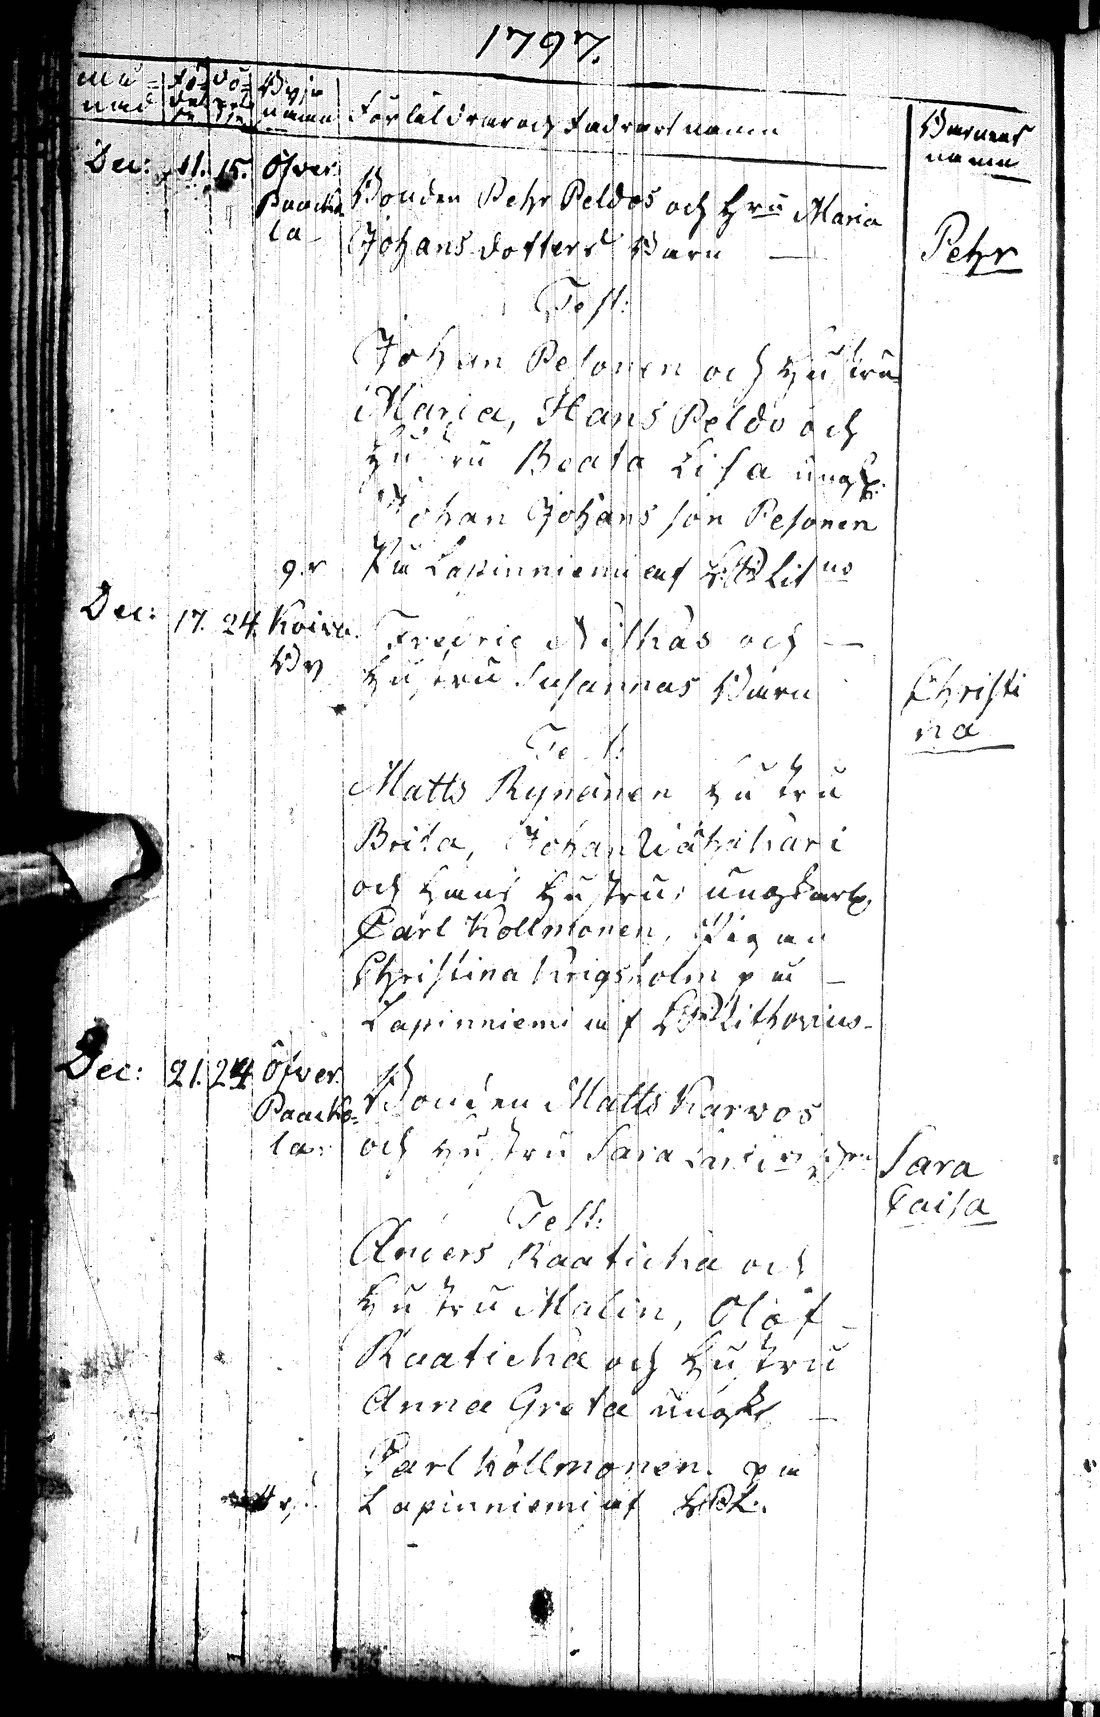 1797.
Må= Fö= Dö= Byje
nad del pel namn Föräldrar och Faderart namn Barnens
se se namn
Dec: 11. 15. Öfver Bonden Pehr Peldos och Hru Maria
Paacko
la Johans dotters Barn — Pehr
Test:
Johan Pesonen och Hustru
Maria, Hans Peldo och
Hustru Beata Lisa ungk:
Johan Johans son Pesonen
På Lapinniemi af
Dec: 17. 24. Koivu Fredric Nilkas och —
By Hustru Susannas Barn Christi
na
Test:
Matts Rynänen Hustru
Brita, Johan Wähäkari
och Hans Hustru, ungkarl.
Carl Kollmonen, Pigan
Christina Krigsholm på
Lapinniemi af Lithovius
Dec: 21. 24 Öfver Bonden Matts Karvos
Paacko=
la: och Hustru Sara Sara
Caisa
Test:
Anders Raaticka och
Hustru Malin, Olof
Raaticka och Hustru
Anna Greta ungkl
Carl Kollmonen. på
Lapinniemi af